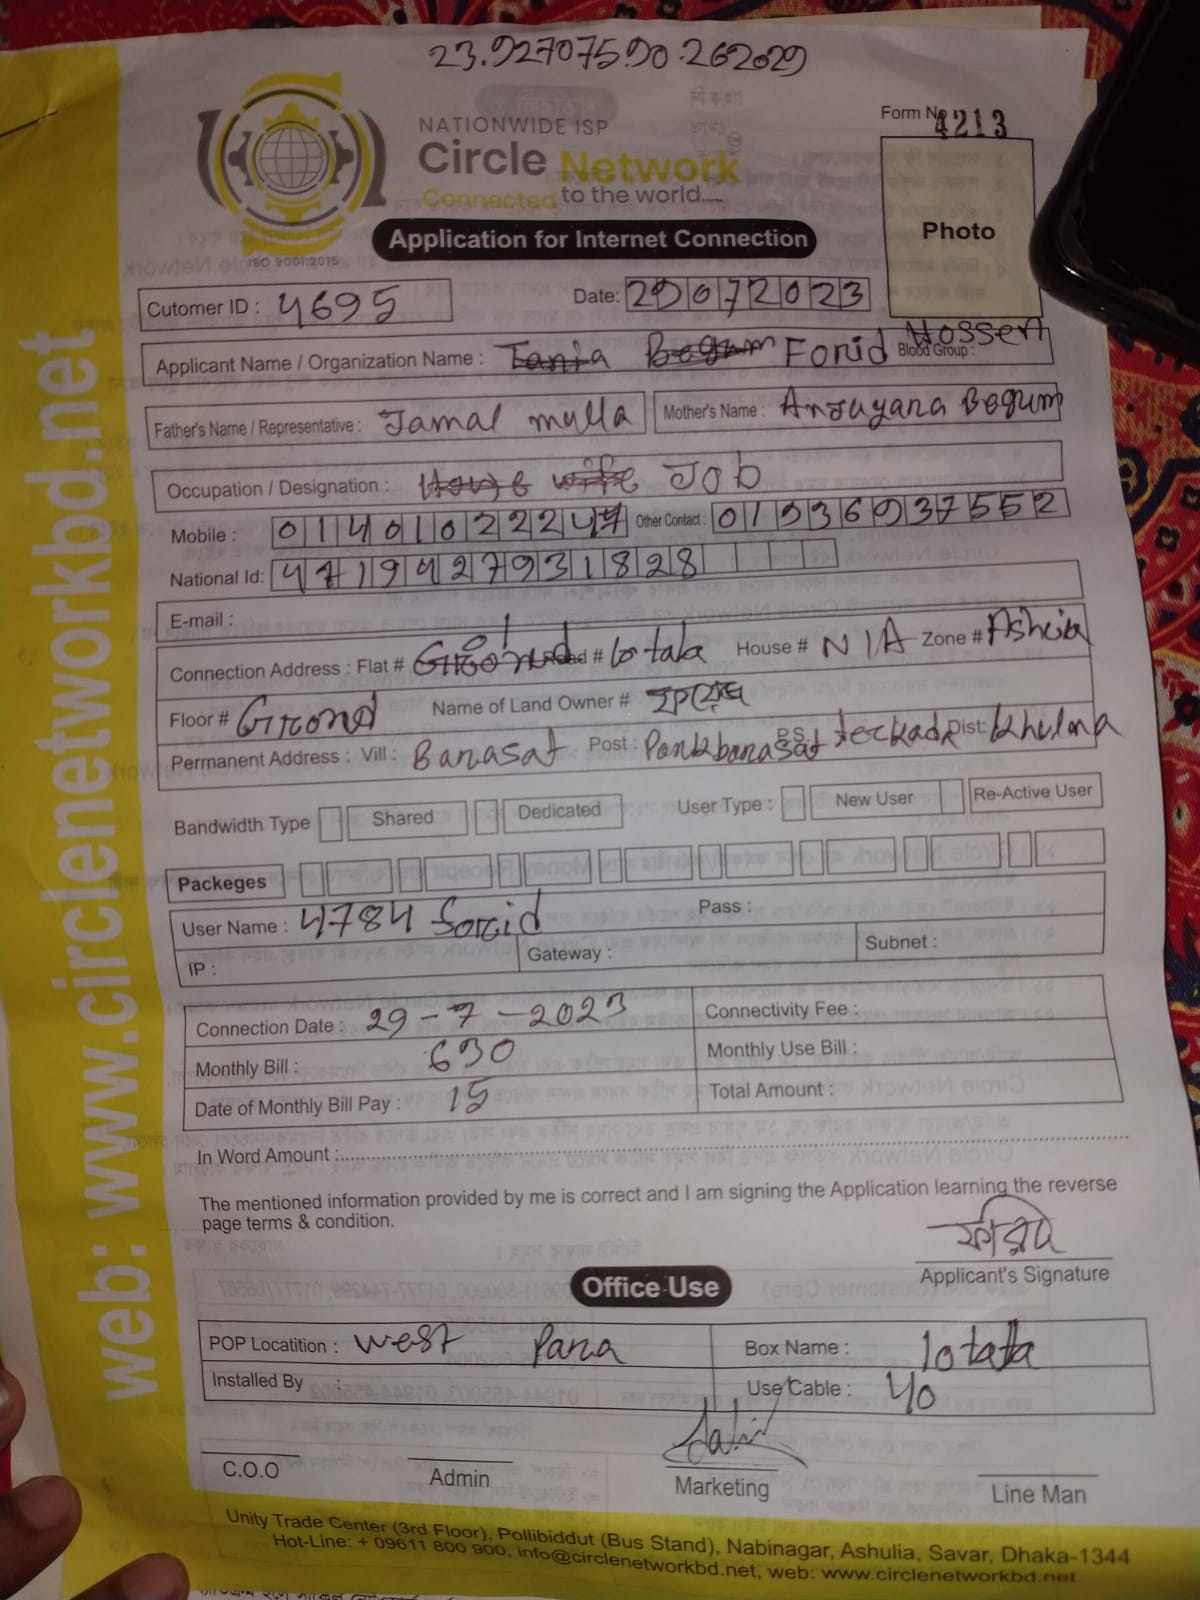 23.92707590.262029
NATIONWIDE ISP
Circle Network
Connected to the world.....
ISO 9001:2015
Form No 4213
Photo
Application for Internet Connection
Cutomer ID : 4695
Date: 29072023
Applicant Name / Organization Name : Tania Begum Forid Hossen
Blood Group :
Father's Name / Representative : Jamal mulla
Mother's Name : Anjuyara Begum
Occupation / Designation : House wife Job
Mobile : 01401022247 Other Contact : 01936937552
National Id: 4719427931828
E-mail :
Connection Address : Flat # Road # lotala House # N/A Zone # Ashulia
Floor # Girond Name of Land Owner #
Permanent Address : Vill : Banasat Post : Pankbanasat P.S: Dist: Khulna
Bandwidth Type Shared Dedicated User Type : New User Re-Active User
Packeges
User Name : 4784 forid Pass :
IP : Gateway : Subnet :
Connection Date : 29-7-2023 Connectivity Fee :
Monthly Bill : 630 Monthly Use Bill :
Date of Monthly Bill Pay : 15 Total Amount :
In Word Amount :
The mentioned information provided by me is correct and I am signing the Application learning the reverse
page terms & condition.
ফরিদ
Applicant's Signature
Office Use
POP Locatition : west Para Box Name : lotala
Installed By : Use Cable : 40
C.O.O Admin Marketing Line Man
Unity Trade Center (3rd Floor), Pollibiddut (Bus Stand), Nabinagar, Ashulia, Savar, Dhaka-1344
Hot-Line: + 09611 800 900, info@circlenetworkbd.net, web: www.circlenetworkbd.net
web: www.circlenetworkbd.net